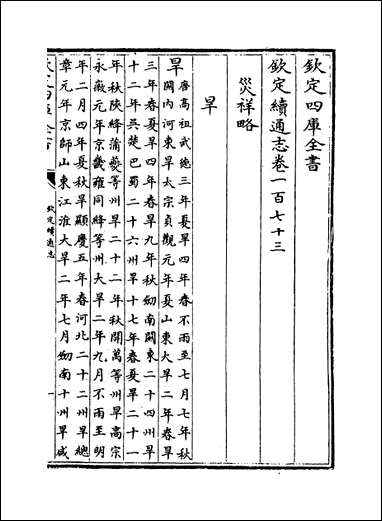 欽定四庫全書
欽定續通志卷一百七十三
災祥略
旱
旱
唐髙祖武徳三年夏旱四年春不雨至七月七年秋
闗内河東旱太宗貞觀元年夏山東大旱二年春旱
三年春夏旱四年春旱九年秋劒南闗東二十四州旱
十二年吳楚巴蜀二十六州旱十七年春夏旱二十一
年秋陜絳蒲夔等州旱二十二年秋開萬等州旱高宗
永徽元年京畿雍同絳等州大旱二年九月不雨至明
年二月四年夏秋旱顯慶五年春河北二十二州旱總
章元年京師山東江淮大旱二年七月劒南十州旱咸
欽定續通志
一